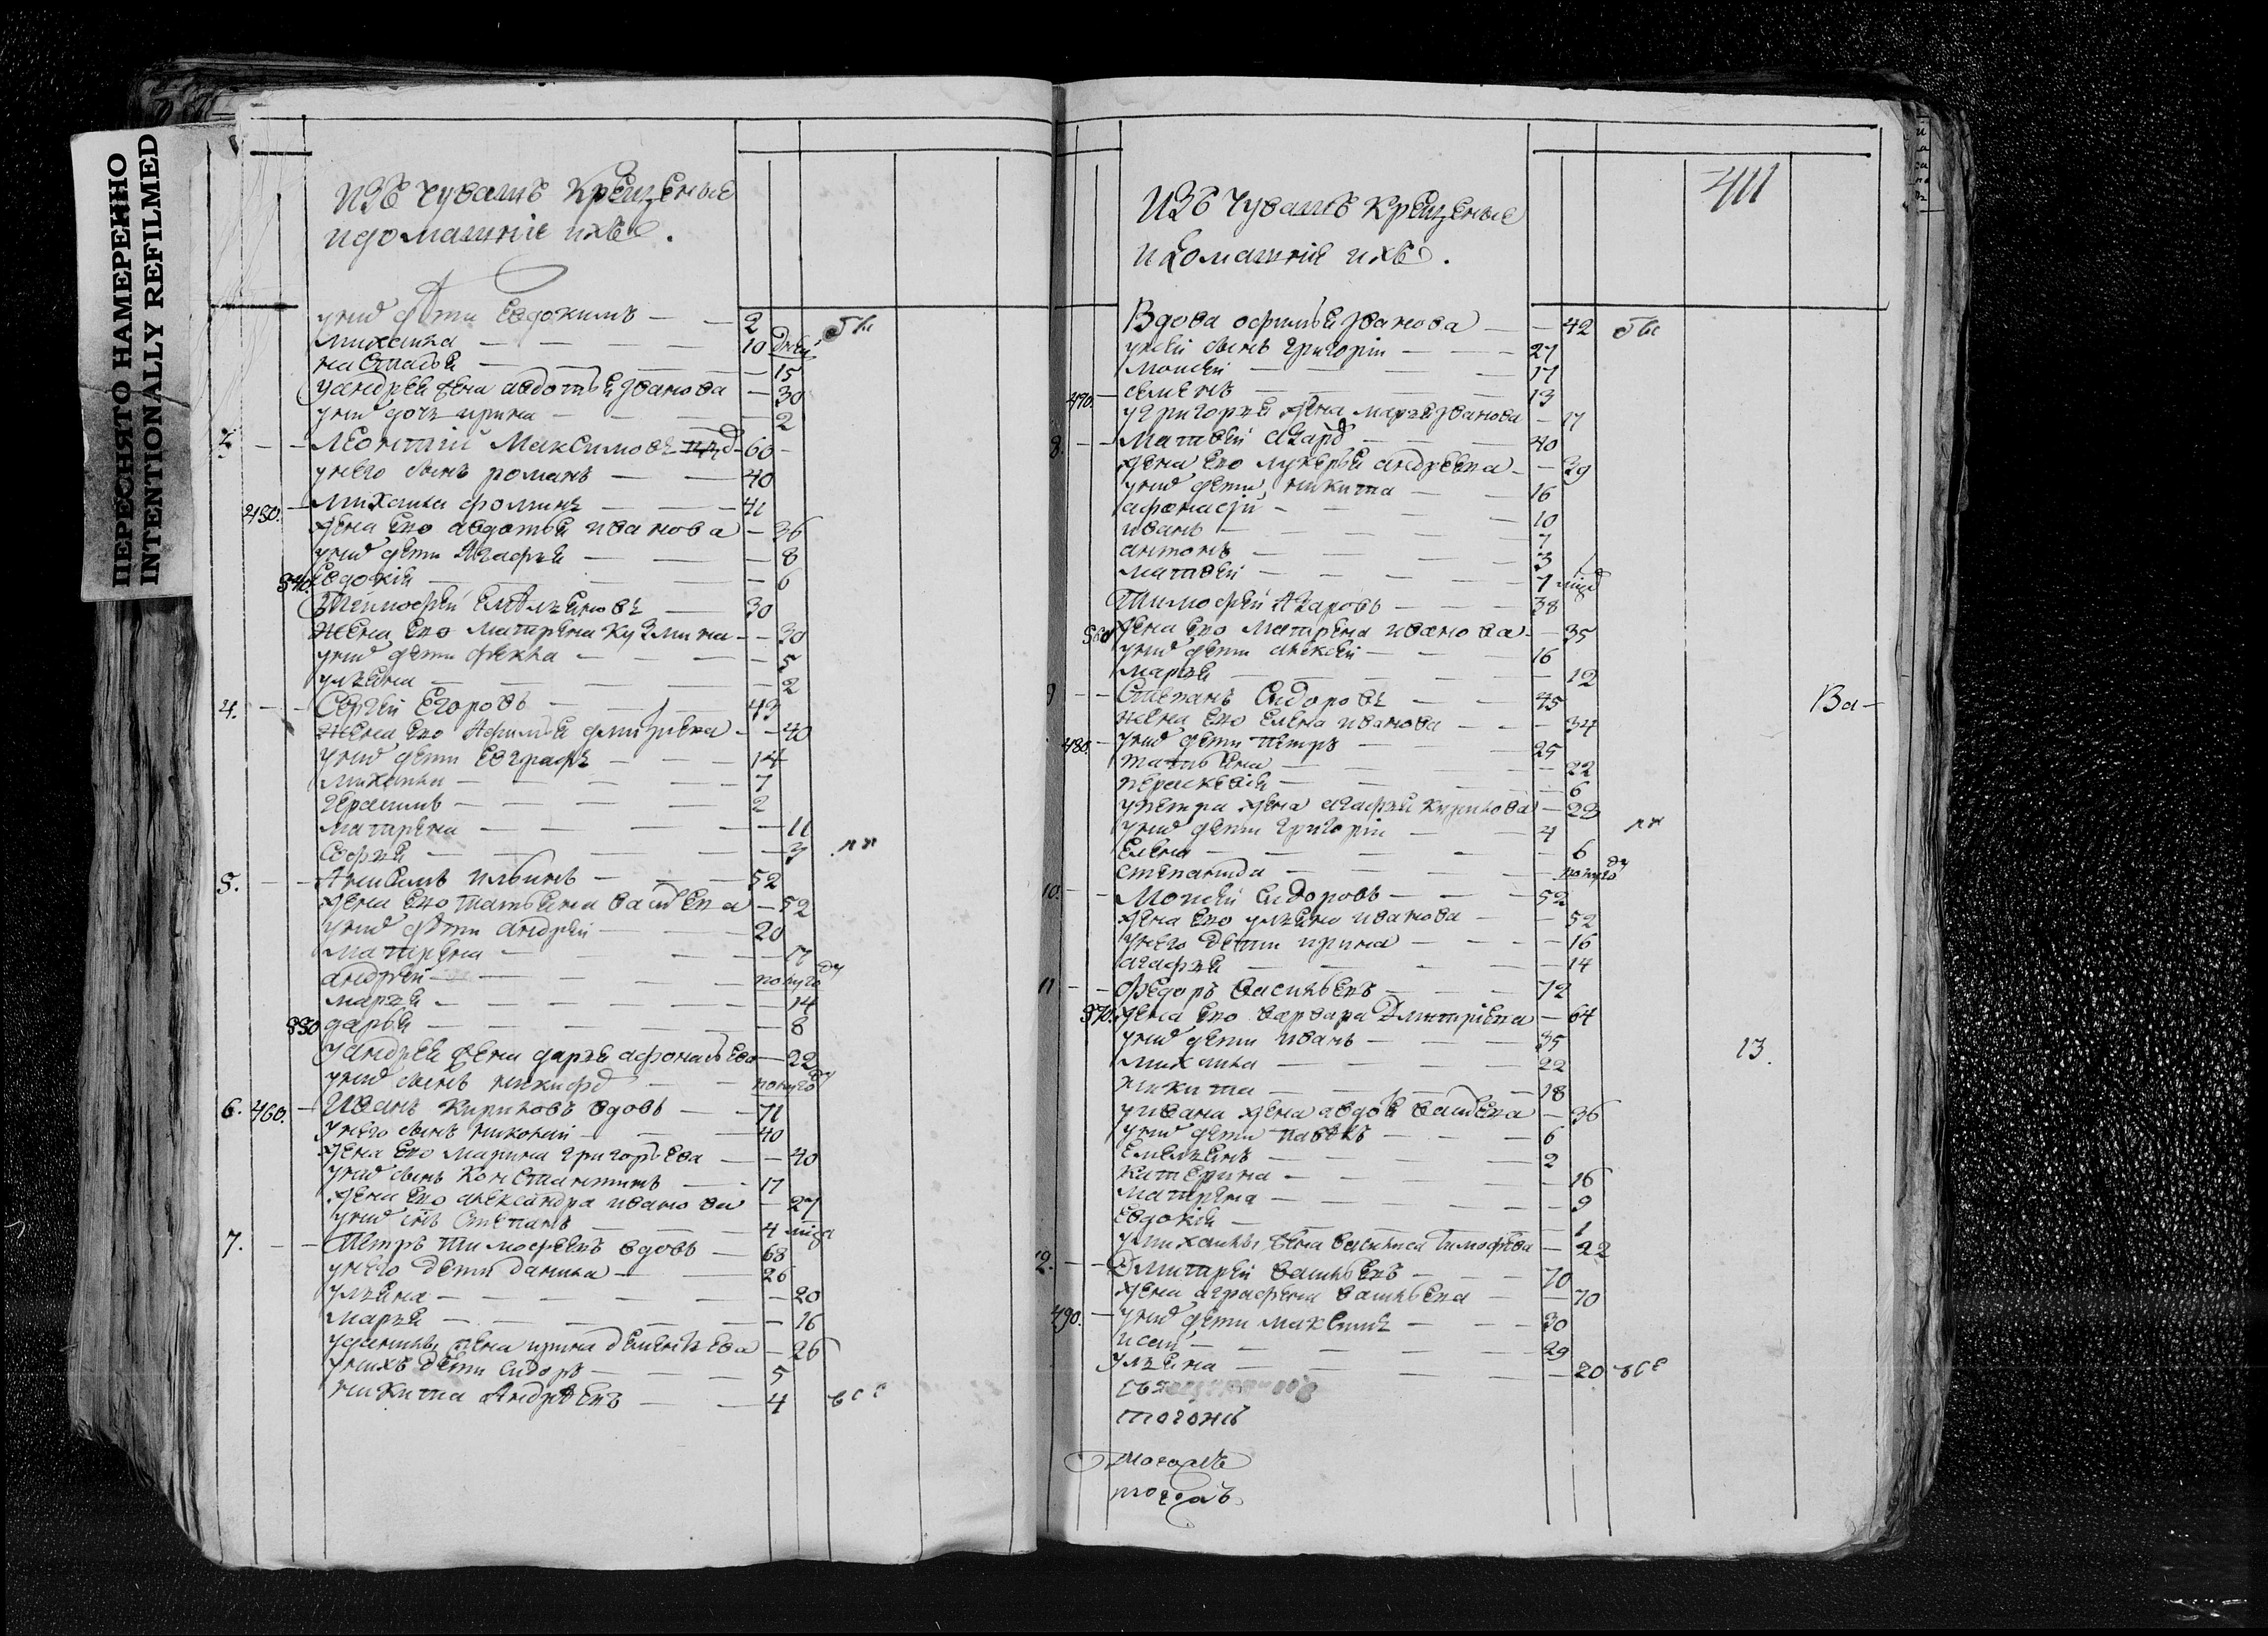 ПЕРЕСНЯТО НАМЕРЕННО
INTENTIONALLY REFILMED
изъ чувашъ крещеные
и домашние ихъ.
у них дети Евдокимъ — 2
михаила — 10 дней
настасья — 15
у андрея жена авдотья Иванова — 30
у них дочь ирина — 2
3 — Леонтий Максимовъ — 60
у него сынъ романъ — 40
михаила фоминъ — 41
450. жена ево авдотья иванова — 36
у них дети Агафья — 8
540. Евдокия — 6
Тимофей Емельяновъ — 30
жена ево матрена кузмина — 30
у них дети фекла — 5
ульяна — 2
4. — Сергей Егоровъ — 43
жена ево Афимья — 40
у них дети Евграфъ — 14
михаила — 7
герасимъ — 2
матрена — 11
софья — 3
5. — Анисимъ ильинъ — 52
жена ево татьяна васильева — 52
у них дети андрей — 20
матрена — 17
андрей — полугоду
марья — 14
550 дарья — 8
у андрея жена дарья афонасьева — 22
у них сынъ никифоръ — полугоду
6. 460. — Иванъ Кириловъ вдовъ — 71
у него сынъ николай — 40
жена ево марина григорьева — 40
у них сынъ Константинъ — 17
жена ево александра иванова — 27
у них сынъ Степанъ — 4
7. — Петръ тимофеевъ вдовъ — 68
у него дети данила — 26
ульяна — 20
марья — 16
у данилы жена ирина — 26
у нихъ дети сидоръ — 5
никита Андреевъ — 4
изъ чувашъ крещеные
и домашние ихъ.
411
Вдова офимья Иванова — 42
у ней сынъ григорий — 27
моисей — 17
470. семенъ — 13
у григорья жена марья Иванова — 17
8. — Матвей Азаровъ — 40
жена ево лукерья андреева — 39
у них дети никита — 16
афонасий — 10
иванъ — 7
антонъ — 3
матвей — 7
Тимофей Азаровъ — 38
560 жена ево матрена иванова — 35
у них дети алексей — 16
марья — 12
9 — Степанъ Сидоровъ — 45
Ва-
жена ево Елена иванова — 34
480. — у них дети петръ — 25
татьяна — 22
парасковия — 6
у петра жена агафья кирилова — 23
у них дети григорий — 4
Елена — 6
степанида — полугоду
10. — Моисей Сидоровъ — 52
жена ево ульяна иванова — 52
у него дети ирина — 16
агафья — 14
11 — Федоръ васильевъ — 72
570. жена ево варвара Дмитриева — 64
у них дети иванъ — 35
13.
михаила — 22
никита — 18
у ивана жена авдотья васильева — 36
у них дети павелъ — 6
Емельянъ — 2
катерина — 16
матрена — 9
Евдокия — 1
у михаилы жена василиса тимофеева — 22
12. — Дмитрей васильевъ — 70
жена аграфена васильева — 70
490. — у них дети максимъ — 30
исай — 29
ульяна — 20
тогожъ
тогожъ
тогожъ